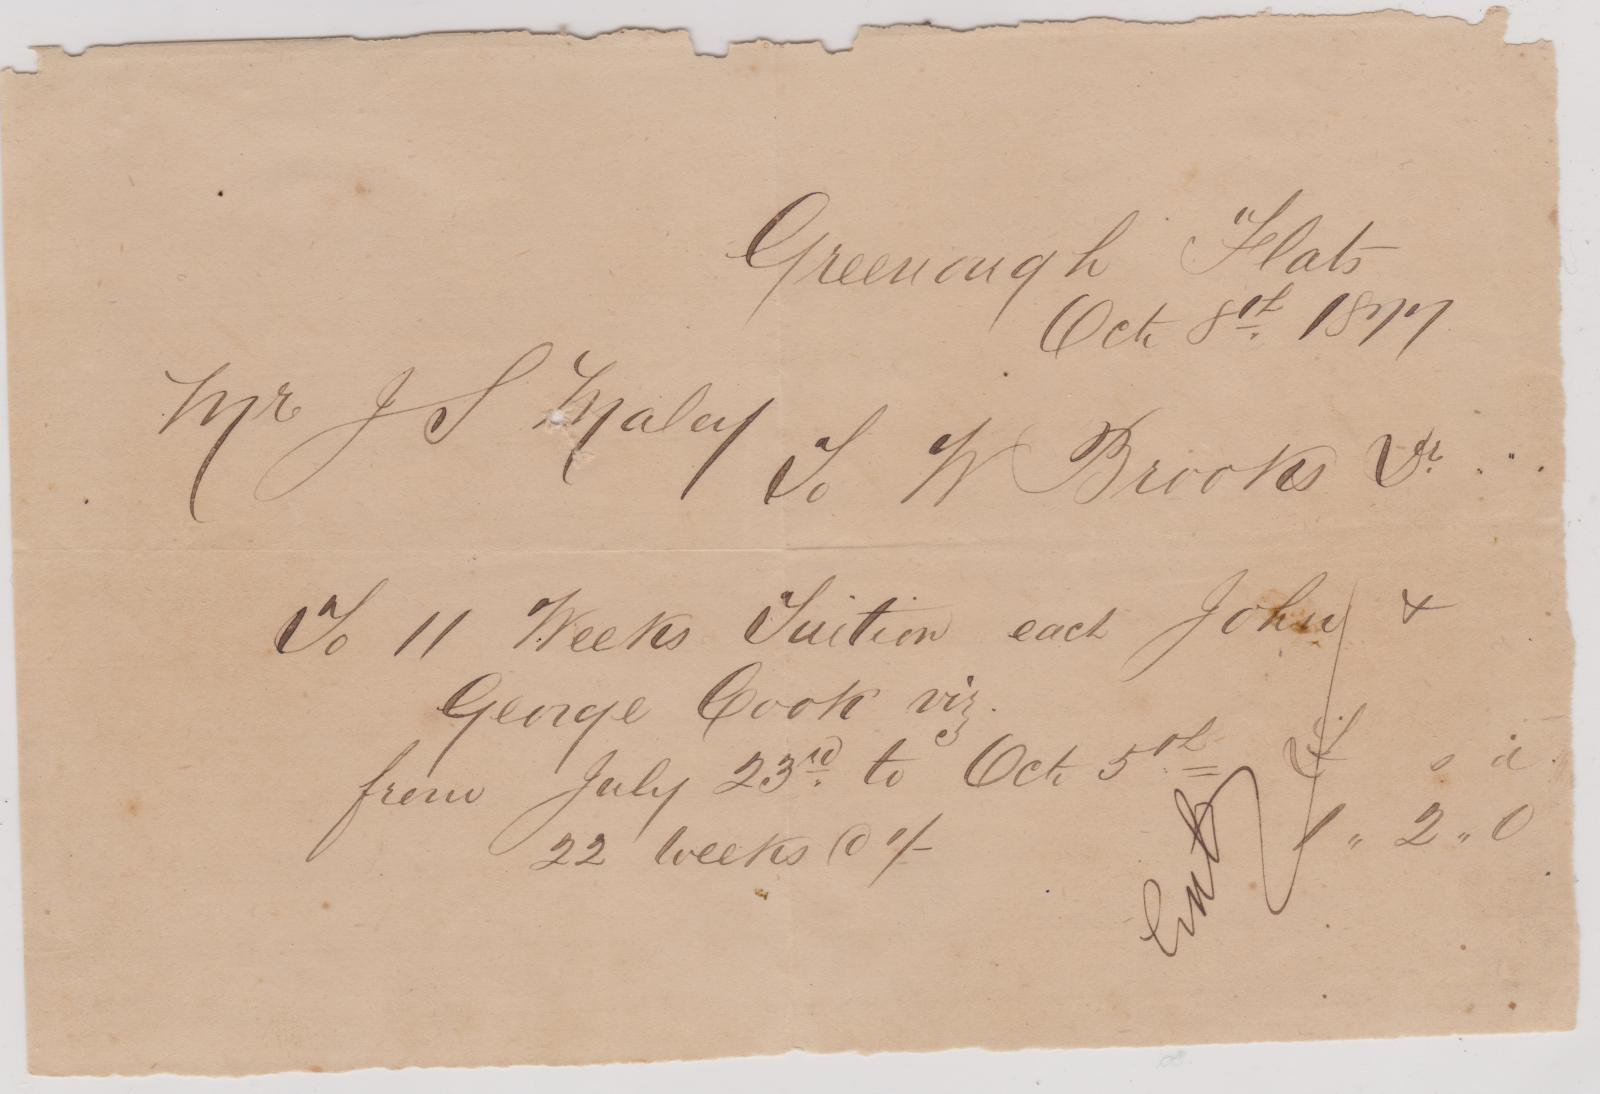 Greenough Flats
Oct 8th 1877
Mr J S Maley
To W Brooks Dr
To 11 Weeks Tuition each John &
George Cook viz.
from July 23rd to Oct 5th £ s d
22 weeks @ 1/- 1 " 2 " 0